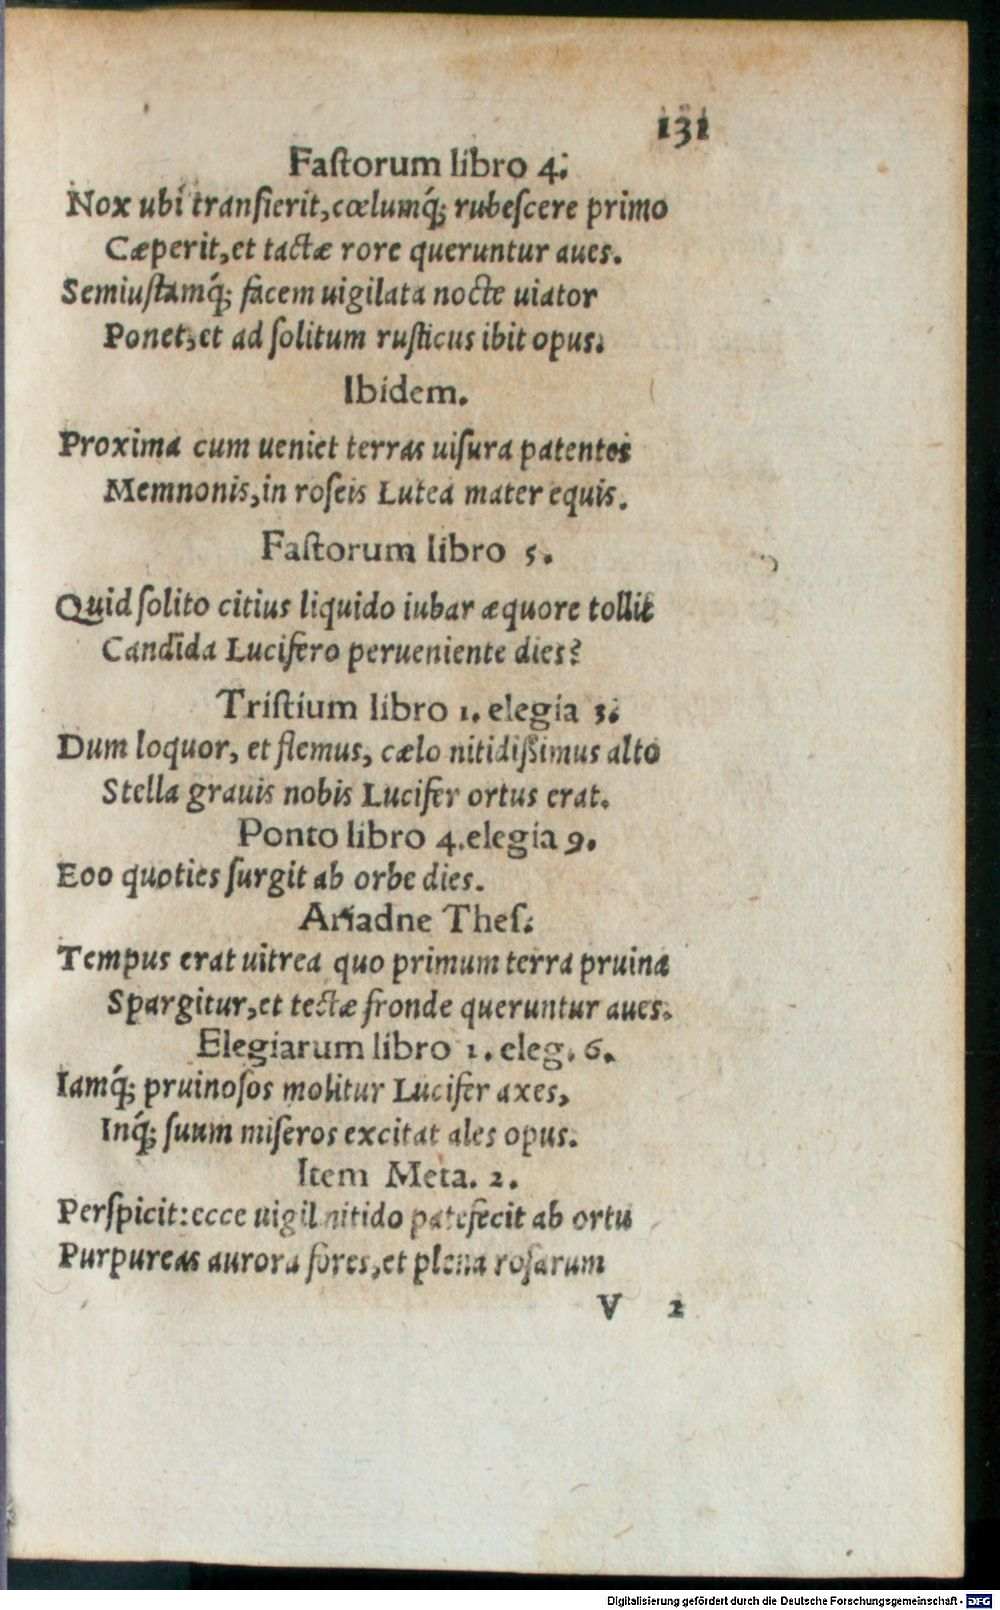 131
Faſtorum libro 4.
Nox ubi tranſierit, cœlumq́; rubeſcere primo
Cæperit, et tactæ rore queruntur aues.
Semiuſtamq́; facem uigilata nocte uiator
Ponet, et ad ſolitum ruſticus ibit opus.
Ibidem.
Proxima cum ueniet terras uiſura patentes
Memnonis, in roſeis Lutea mater equis.
Faſtorum libro 5.
Quid ſolito citius liquido iubar æquore tollit
Candida Lucifero perueniente dies?
Triſtium libro 1. elegia 3.
Dum loquor, et flemus, cælo nitidißimus alto
Stella grauis nobis Lucifer ortus erat.
Ponto libro 4. elegia 9.
Eoo quoties ſurgit ab orbe dies.
Ariadne Theſ.
Tempus erat uitrea quo primum terra pruina
Spargitur, et tectæ fronde queruntur aues.
Elegiarum libro 1. eleg. 6.
Iamq́; pruinoſos molitur Lucifer axes,
Inq́; ſuum miſeros excitat ales opus.
Item Meta. 2.
Perſpicit: ecce uigil nitido patefecit ab ortu
Purpureas aurora fores, et plena roſarum
V 2
Digitalisierung gefördert durch die Deutsche Forschungsgemeinschaft - DFG